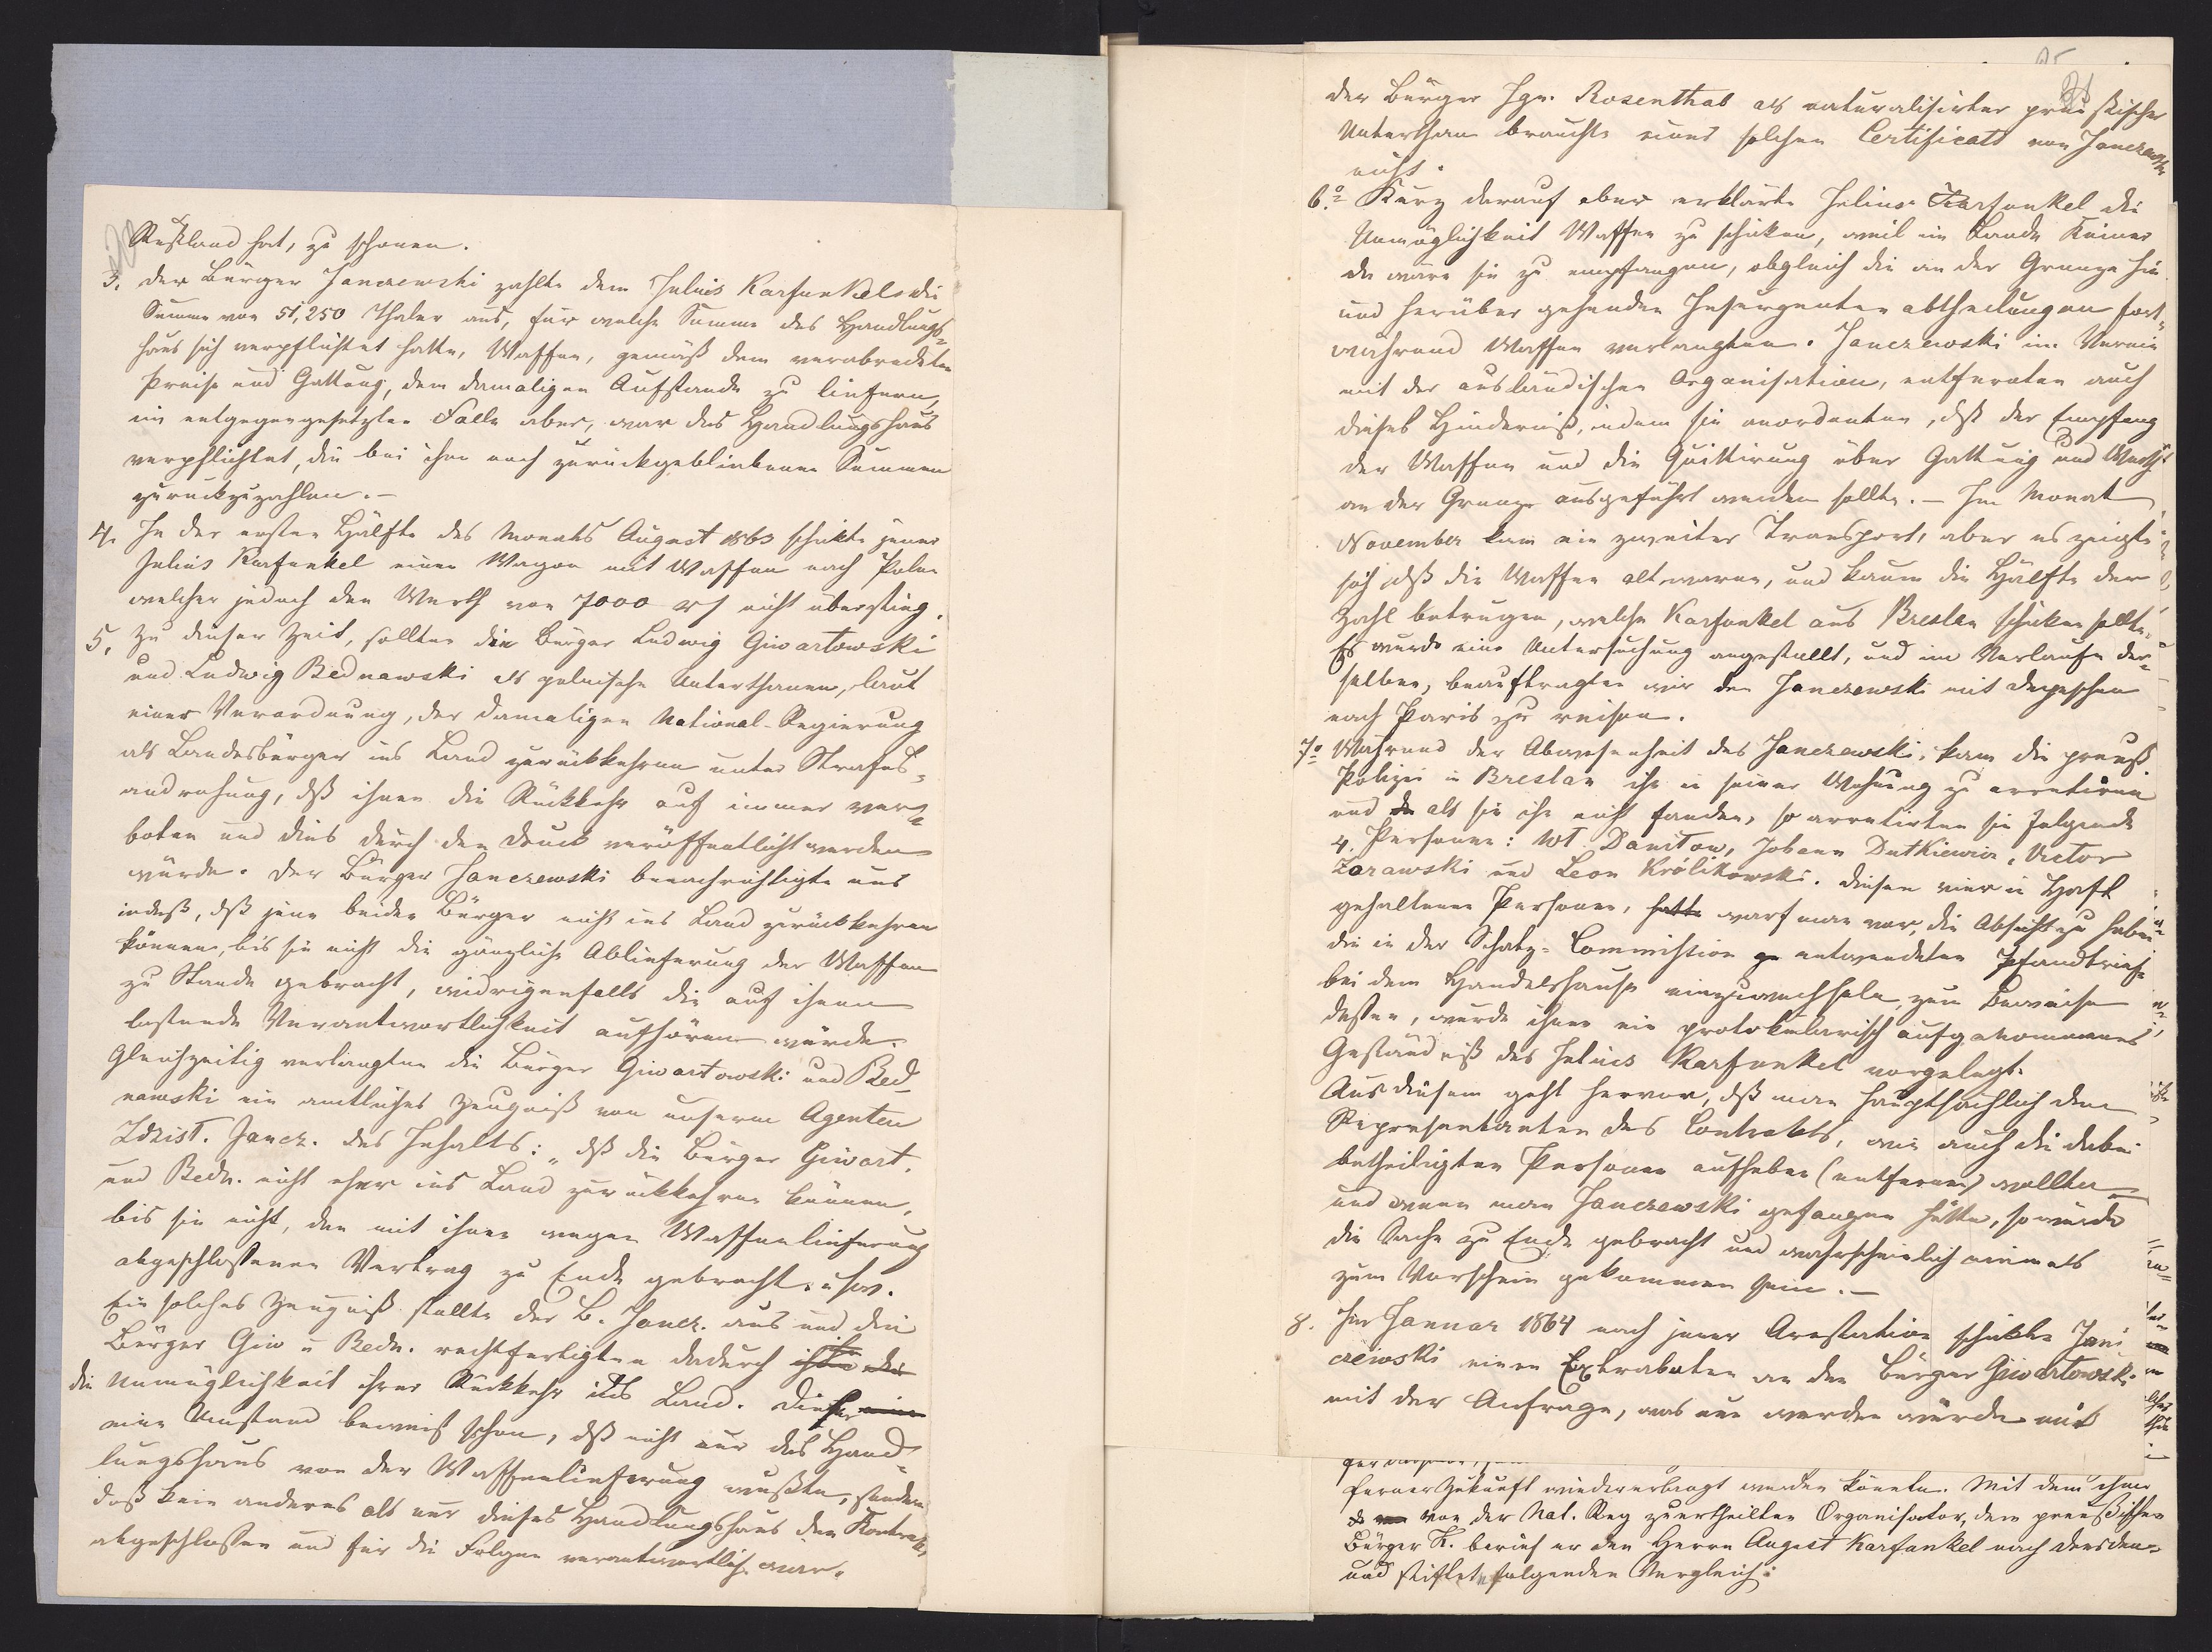 Rußland hat, zu schonen.
3. Der Bürger Janczewski zahlte dem Julius Karfunkel die
Summe von 51,250 Thaler aus, für welche Summe das Handlungs=
haus sich verpflichtet hatte, Waffen, gemäß dem verabredeten
Preise und Gattung, dem damaligen Aufstande zu liefern,
im entgegengesetzten Falle aber, war das Handlungshaus
verpflichtet, die bei ihm noch zurückgebliebenen Summen
zurückzuzahlen. –
4. In der ersten Hälfte des Monats August 1863 schickte jener
Julius Karfunkel einen Wagon mit Waffen nach Polen
welcher jedoch den Werth von 7000 rf nicht überstieg.
5. Zu dieser Zeit, sollten die Bürger Ludwig Giwartowski
und Ludwig Bednawski als polnische Unterthanen, laut
einer Verordnung, der damaligen National-Regierung
als Landesbürger ins Land zurückkehren unter Strafes=
androhung, dß ihnen die Rückkehr auf immer ver=
boten und dies durch den Druck veröffentlicht werden
würde. Der Bürger Janczewski benachrichtigte uns
indeß, dß jene beiden Bürger nicht ins Land zurückkehren
können, bis sie nicht die gänzliche Ablieferung der Waffen
zu Stande gebracht, widrigenfalls die auf ihnen
lastende Verantwortlichkeit aufhören würde.
Gleichzeitig verlangten die Bürger Giwartowski und Bed
nawski ein amtliches Zeugniß von unserm Agenten
Zdzist. Jancz. des Inhalts: „dß die Bürger Giwart.
und Bedn. nicht eher ins Land zurückkehren können,
bis sie nicht, den mit ihnen wegen Waffenlieferung
abgeschlossenen Vertrag zu Ende gebracht. usw.
Ein solches Zeugniß stellte der B. Jancz. aus und die
Bürger Giw u Bedn. rechtfertigten dadurch
die Unmöglichkeit ihrer Rückkehr ins Land. Dieser
eine Umstand beweist schon, dß nicht nur das Hand=
lungshaus von der Waffenlieferung wußte, sondern
daß kein anderes als nur dieses Handlungshaus den Kontrakt
abgeschlossen und für die Folgen verantwortlich war.
der Bürger Ign. Rosenthal als naturalisirter preußischer
Unterthan brauchte eines solchen Certificats von Janczewski
nicht.
6.o Kurz darauf aber erklärte Julius Karfunkel die
Unmöglichkeit Waffen zu schicken, weil im Lande Keiner
da wäre sie zu empfangen, obgleich die an der Grenze hin
und herüber gehenden Insurgenten abtheilungen fort=
während Waffen verlangten. Janczewski im Verein
mit der ausländischen Organisation, entfernten auch
dieses Hinderniß, indem sie anordneten, dß der Empfang
der Waffen und die Quittirung über Gattung und Werth
an der Grenze ausgeführt werden sollte. – Im Monat
November kam ein zweiter Transport, aber es zeigte
sich, dß die Waffen alt waren, und kaum die Hälfte der
Zahl betrugen, welche Karfunkel aus Breslau schicken sollte.
Es wurde eine Untersuchung angestellt, und im Verlaufe der=
selben, beauftragten wir den Janczewski mit Depeschen
nach Paris zu reisen.
7o Während der Abwesenheit des Janczewski, kam die preuß.
Polizei in Breslau ihn in seiner Wohnung zu arretiren
und als sie ihn nicht fanden, so arretirten sie folgende
4. Personen: Wł. Daniłow, Johann Dutkiewicz, Victor
Żorawski und Leon Królikowski. Diesen vier in Haft
gehaltenen Personen, hatte warf man vor, die Absicht zu haben
die in der Schatz=Commission entwendeten Pfandbriefe
bei dem Handelshause einzuwechseln, zum Beweise
dessen, wurde ihnen ein protokolarisch aufgenommenes
Geständniß des Julius Karfunkel vorgelegt.
Aus diesem geht hervor, dß man hauptsächlich den
Repräsentanten des Contrakts, wie auch die dabei
betheiligten Personen aufheben (entfernen) wollte
und wenn man Janczewski gefangen hätte, so würde
die Sache zu Ende gebracht und wahrscheinlich niemals
zum Vorschein gekommen sein. –
8. Im Januar 1864 nach jener Arestation schickte Jan
czewski einen Extraboten an den Bürger Giwartowski
mit der Anfrage, was nun werden würde mit
ferner Zukunft wiedererlangt werden könnten. Mit dem ihm
von der Nat. Reg zuertheilten Organisator, dem preußischen
Bürger K. berief er den Herrn August Karfunkel nach Dresden
und stiftete folgenden Vergleich: